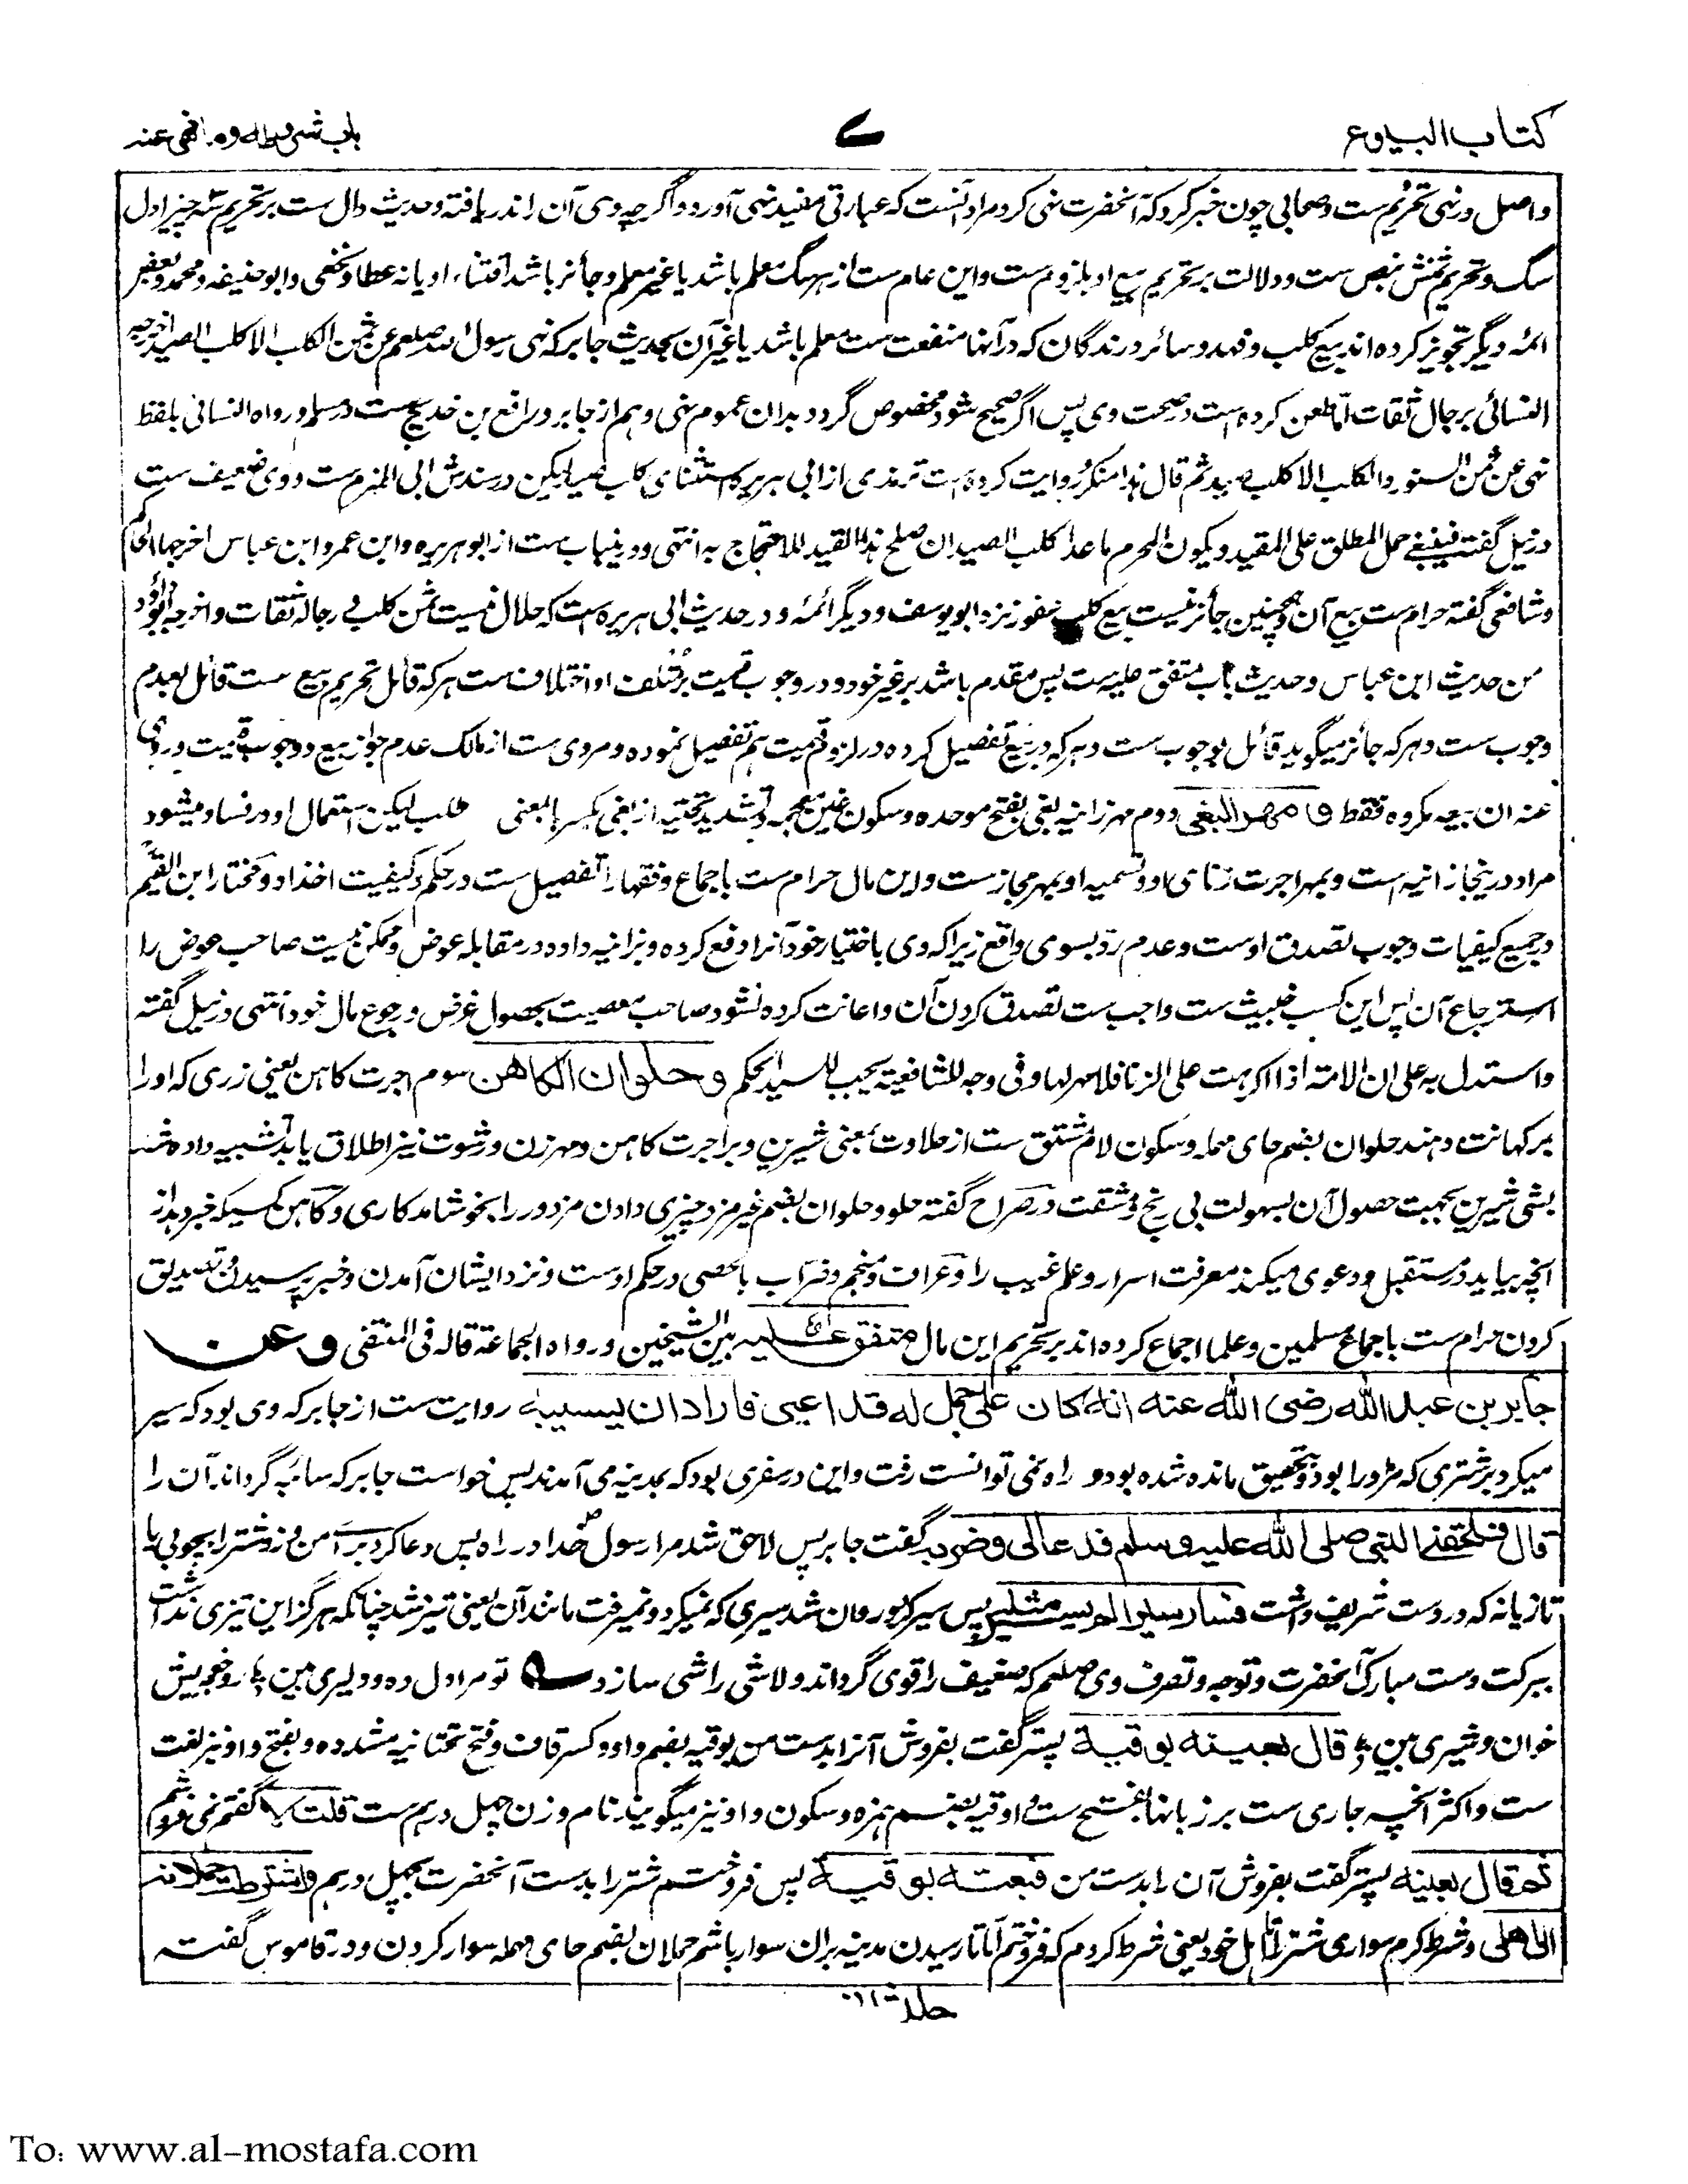 کتاب البیوع
۷
باب شروطه وما نهی عنه
واصل در نهی تحریم ست وصحابی چون خبر کرد که آنحضرت نهی کرد مراد آنست که عبارتی مفید نهی آورده واگرچه وی آن را ندریافته وحدیث دال ست بر تحریم سه چیز اول
سگ وتحریم ثمنش بنص ست ودلالت بر تحریم بیع او بلزوم ست واین عام ست از هر سگ معلم باشد یا غیر معلم وجائز باشد اقتناء او یا نه عطا ونخعی وابو حنیفه ومحمد وبعض
ائمه دیگر تجویز کرده اند بیع کلب وفهد وسائر درندگان که در آنها منفعت ست معلم باشد یا غیر آن بحدیث جابر که نهی رسول الله صلعم عن ثمن الکلب الا کلب الصید اخرجه
النسائی برجال ثقات اما طعن کرده است در صحت وی پس اگر صحیح شود مخصوص گردد بدان عموم نهی وهم از جابر ورافع بن خدیج ست در مسلم ورواه النسائی بلفظ
نهی عن ثمن السنور والکلب الا کلب صید ثم قال هذا منکر وروایت کرده است ترمذی از ابی هریره استثنای کلب صید لیکن در سندش ابی المهزم ست ووی ضعیف ست
در نیل گفته فینبغی حمل المطلق علی المقید ویکون المحرم ما عدا کلب الصید ان صلح هذا القید للاحتجاج به انتهی ودرینباب ست از ابو هریره وابن عمر وابن عباس اخرجها الحاکم
وشافعی گفته حرام ست بیع آن وهمچنین جائز نیست بیع کلب عقور نزد ابو یوسف ودیگر ائمه ودر حدیث ابی هریره است که حلال نیست ثمن کلب رجاله ثقات واخرجه ابو داؤد
من حدیث ابن عباس وحدیث باب متفق علیه ست پس مقدم باشد بر غیر خود ودر وجوب قیمت بر متلف او اختلاف ست هر که قائل تحریم بیع ست قائل بعدم
وجوب ست وهر که جائز میگوید قائل بوجوب ست وهر که در بیع تفصیل کرده در لزوم قیمت هم تفصیل نموده ومروی ست از مالک عدم جواز بیع ووجوب قیمت وروی
عنه ان بیعه مکروه فقط و مهر البغی دوم مهر زانیه بغی بفتح موحده وسکون غین معجمه وتشدید تحتیه از بغی بکسر با بمعنی طلب لیکن استعمال او در فساد میشود
مراد درینجا زانیه است وبمهر اجرت زنای او وتسمیه او بمهر مجاز ست واین مال حرام ست باجماع وفقها را تفصیل ست در حکم وکیفیت اخذ او ومختار ابن القیم
در جمیع کیفیات وجوب تصدق اوست وعدم رد بسوی دافع زیراکه وی باختیار خود آنرا دفع کرده وبزانیه داده در مقابله عوض وممکن نیست صاحب عوض را
استرجاع آن پس این کسب خبیث ست واجب ست تصدق کردن آن واعانت کرده نشود صاحب معصیت بحصول غرض ورجوع مال خود انتهی در نیل گفته
واستدل به علی ان الامة اذا اکرهت علی الزنا فلا مهر لها وفی وجه للشافعیة یجب للسید الحکم وحلوان الکاهن سوم اجرت کاهن یعنی زری که او را
بر کهانت دهند حلوان بضم حای مهمله وسکون لام مشتق ست از حلاوت بمعنی شیرین وبر اجرت کاهن ومهر زن ورشوت نیز اطلاق یابد تشبیه داده شد
بشی شیرین بجهت حصول آن بسهولت بی رنج ومشقت ودر صراح گفته حلو وحلوان بضم غیر مزد چیزی دادن مزدور را بخوشامد کاری وکاهن کسیکه خبر دهد از
آنچه بیاید در مستقبل ودعوی میکند معرفت اسرار وعلم غیب را وعراف ومنجم وضراب بالحصی در حکم اوست ونزد ایشان آمدن وخبر پرسیدن وتصدیق
کردن حرام ست باجماع مسلمین وعلما اجماع کرده اند بر تحریم این مال متفق علیه بین الشیخین ورواه الجماعة قاله فی المنتقی وعن
جابر بن عبد الله رضی الله عنه انه کان علی جمل له قد اعیی فاراد ان یسیبه روایت ست از جابر که وی بود که سیر
میکرد بر شتری که مر او را بود وبتحقیق مانده شده بود و راه نمی توانست رفت واین در سفری بود که بمدینه می آمدند پس خواست جابر که سائبه گرداند آن را
قال فلحقنی النبی صلی الله علیه وسلم فدعا لی وضربه گفت جابر پس لاحق شد مرا رسول خدا در راه پس دعا کرد برای من وزد شتر را بچوبی یا
تازیانه که در دست شریف داشت فسار سیرا لم یسر مثله پس سیر کرد وروان شد سیری که نمیکرد ونمیرفت مانند آن یعنی تیز شد چنانکه هرگز این تیزی نداشت
ببرکت دست مبارک آنحضرت وتوجه وتصرف وی صلعم که ضعیف را قوی گرداند ولاشی را شی سازد تو مرا دل ده ودلیری بین روبه خویش
خوان وشیری بین قال بعنیه بوقیة پستر گفت بفروش آنرا بدست من بوقیه بضم واو وکسر قاف وفتح تحتانیه مشدده وبفتح واو نیز لغت
ست واکثر آنچه جاری ست بر زبانها بفتح ست واوقیه بضم همزه وسکون واو نیز میگویند نام وزن چهل درهم ست قلت لا گفتم نمی فروشم
ثم قال بعنیه پستر گفت بفروش آن را بدست من فبعته بوقیة پس فروختم شتر را بدست آنحضرت بچهل درهم واشترطت حملانه
الی اهلی وشرط کردم سواری شتر را تا اهل خود یعنی شرط کردم که فروختم اما تا رسیدن مدینه بران سوار باشم حملان بضم حای مهمله سوار کردن ودر قاموس گفته
جلد ۱۱
To: www.al-mostafa.com